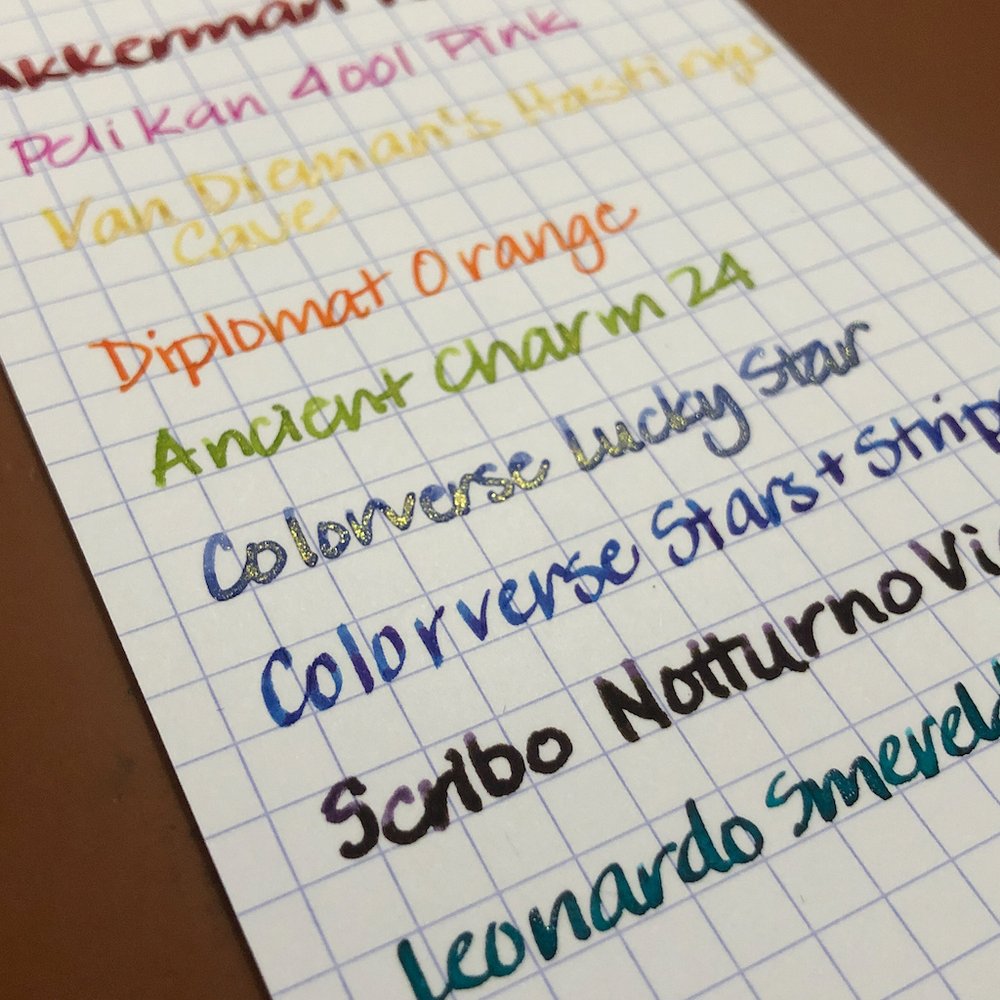 Akkerman
Pelikan 4001 Pink
Van Dieman's Hastings
Cave
Diplomat Orange
Ancient Charm 24
Colorverse Lucky Star
Colorverse Stars + Strip
Scribo Notturno Vi
Leonardo Smerel